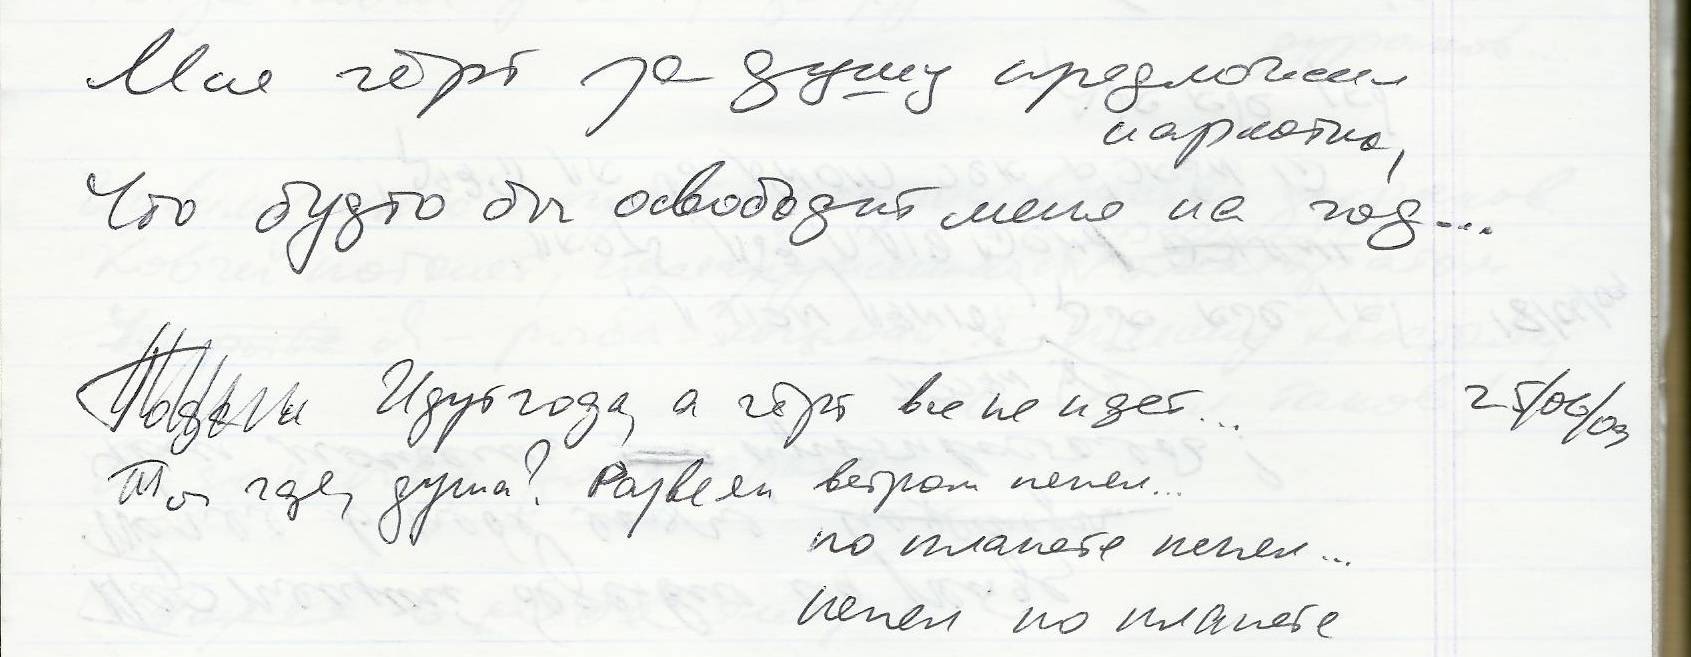 Мне чёрт за душу предложил
наркотик,
Что будто бы освободит меня на год...
Идут года, а чёрт все не идет... 25/06/03
Ты где, душа? Развеян ветром пепел...
по планете пепел...
пепел по планете